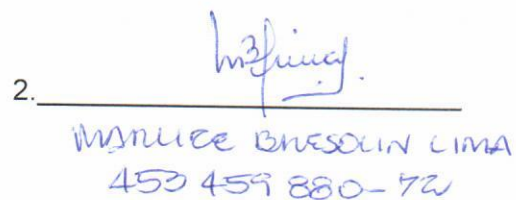 2.
MARLICE BRESOLIN LIMA
453 459 880-72